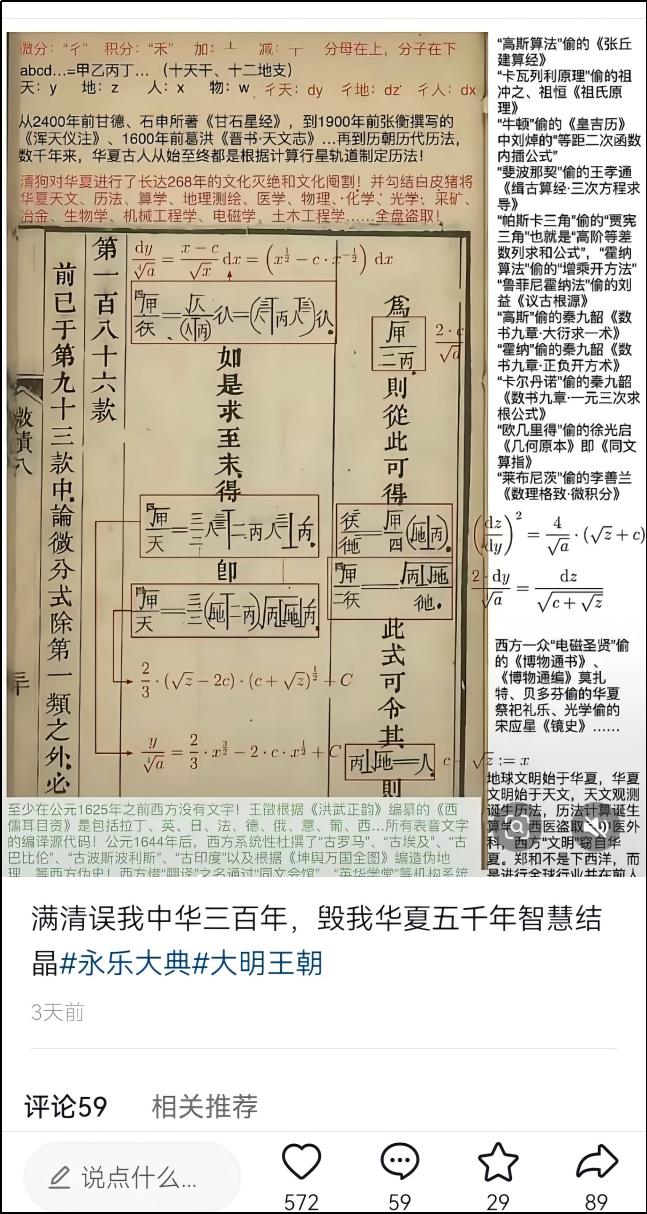 微分：“彳” 积分：“禾” 加：┴ 减：┬ 分母在上，分子在下
abcd…=甲乙丙丁…（十天干、十二地支）
天：y 地：z 人：x 物：w 彳天：dy 彳地：dz 彳人：dx
从2400年前甘德、石申所著《甘石星经》，到1900年前张衡撰写的
《浑天仪注》、1600年前葛洪《晋书·天文志》…再到历朝历代历法，
数千年来，华夏古人从始至终都是根据计算行星轨道制定历法！
清狗对华夏进行了长达268年的文化灭绝和文化阉割！并勾结白皮猪将
华夏天文、历法、算学、地理测绘、医学、物理、化学、光学、采矿、
冶金、生物学、机械工程学、电磁学、土木工程学……全盘盗取！
“高斯算法”偷的《张丘
建算经》
“卡瓦列利原理”偷的祖
冲之、祖恒《祖氏原
理》
“牛顿”偷的《皇吉历》
中刘焯的“等距二次函数
内插公式”
“斐波那契”偷的王孝通
《缉古算经·三次方程求
导》
“帕斯卡三角”偷的“贾宪
三角”也就是“高阶等差
数列求和公式”，“霍纳
算法”偷的“增乘开方法”
“鲁菲尼霍纳法”偷的刘
益《议古根源》
“高斯”偷的秦九韶《数
书九章·大衍求一术》
“霍纳”偷的秦九韶《数
书九章·正负开方术》
“卡尔丹诺”偷的秦九韶
《数书九章·一元三次求
根公式》
“欧几里得”偷的徐光启
《几何原本》即《同文
算指》
“莱布尼茨”偷的李善兰
《数理格致·微积分》
dy/∜a = x − c/√x dx = (x^½ − c · x^−½) dx
2 · c/√a
(dz/dy)² = 4/√a · (√z + c)
2 · dy/√a = dz/√(c + √z)
2/3 · (√z − 2c) · (c + √z)^½ + C
y/∜a = 2/3 · x^3/2 − 2 · c · x^½ + C
c + √z := x
為
則從此可得
此式可令其
丙┴地═人
則
如是求至末得
卽
第一百八十六款
前已于第九十三款中論微分式除第一類之外必
微積八
西方一众“电磁圣贤”偷
的《博物通书》、
《博物通编》莫扎
特、贝多芬偷的华夏
祭祀礼乐、光学偷的
宋应星《镜史》……
地球文明始于华夏，华夏
文明始于天文，天文观测
诞生历法，历法计算诞生
算学
西医盗取
医外
科，西方“文明”窃自华
夏。郑和不是下西洋，而
是进行全球行业并在前人
至少在公元1625年之前西方没有文字！王徵根据《洪武正韵》编纂的《西
儒耳目资》是包括拉丁、英、日、法、德、俄、意、葡、西…所有表音文字
的编译源代码！公元1644年后，西方系统性杜撰了“古罗马”、“古埃及”、“古
巴比伦”、“古波斯波利斯”、“古印度”以及根据《坤舆万国全图》编造伪地
理，等西方伪史！西方借“翻译”之名通过“同文会馆”，“英华学堂”等机构系统
满清误我中华三百年，毁我华夏五千年智慧结
晶#永乐大典#大明王朝
3天前
评论59 相关推荐
说点什么...
572 59 29 89